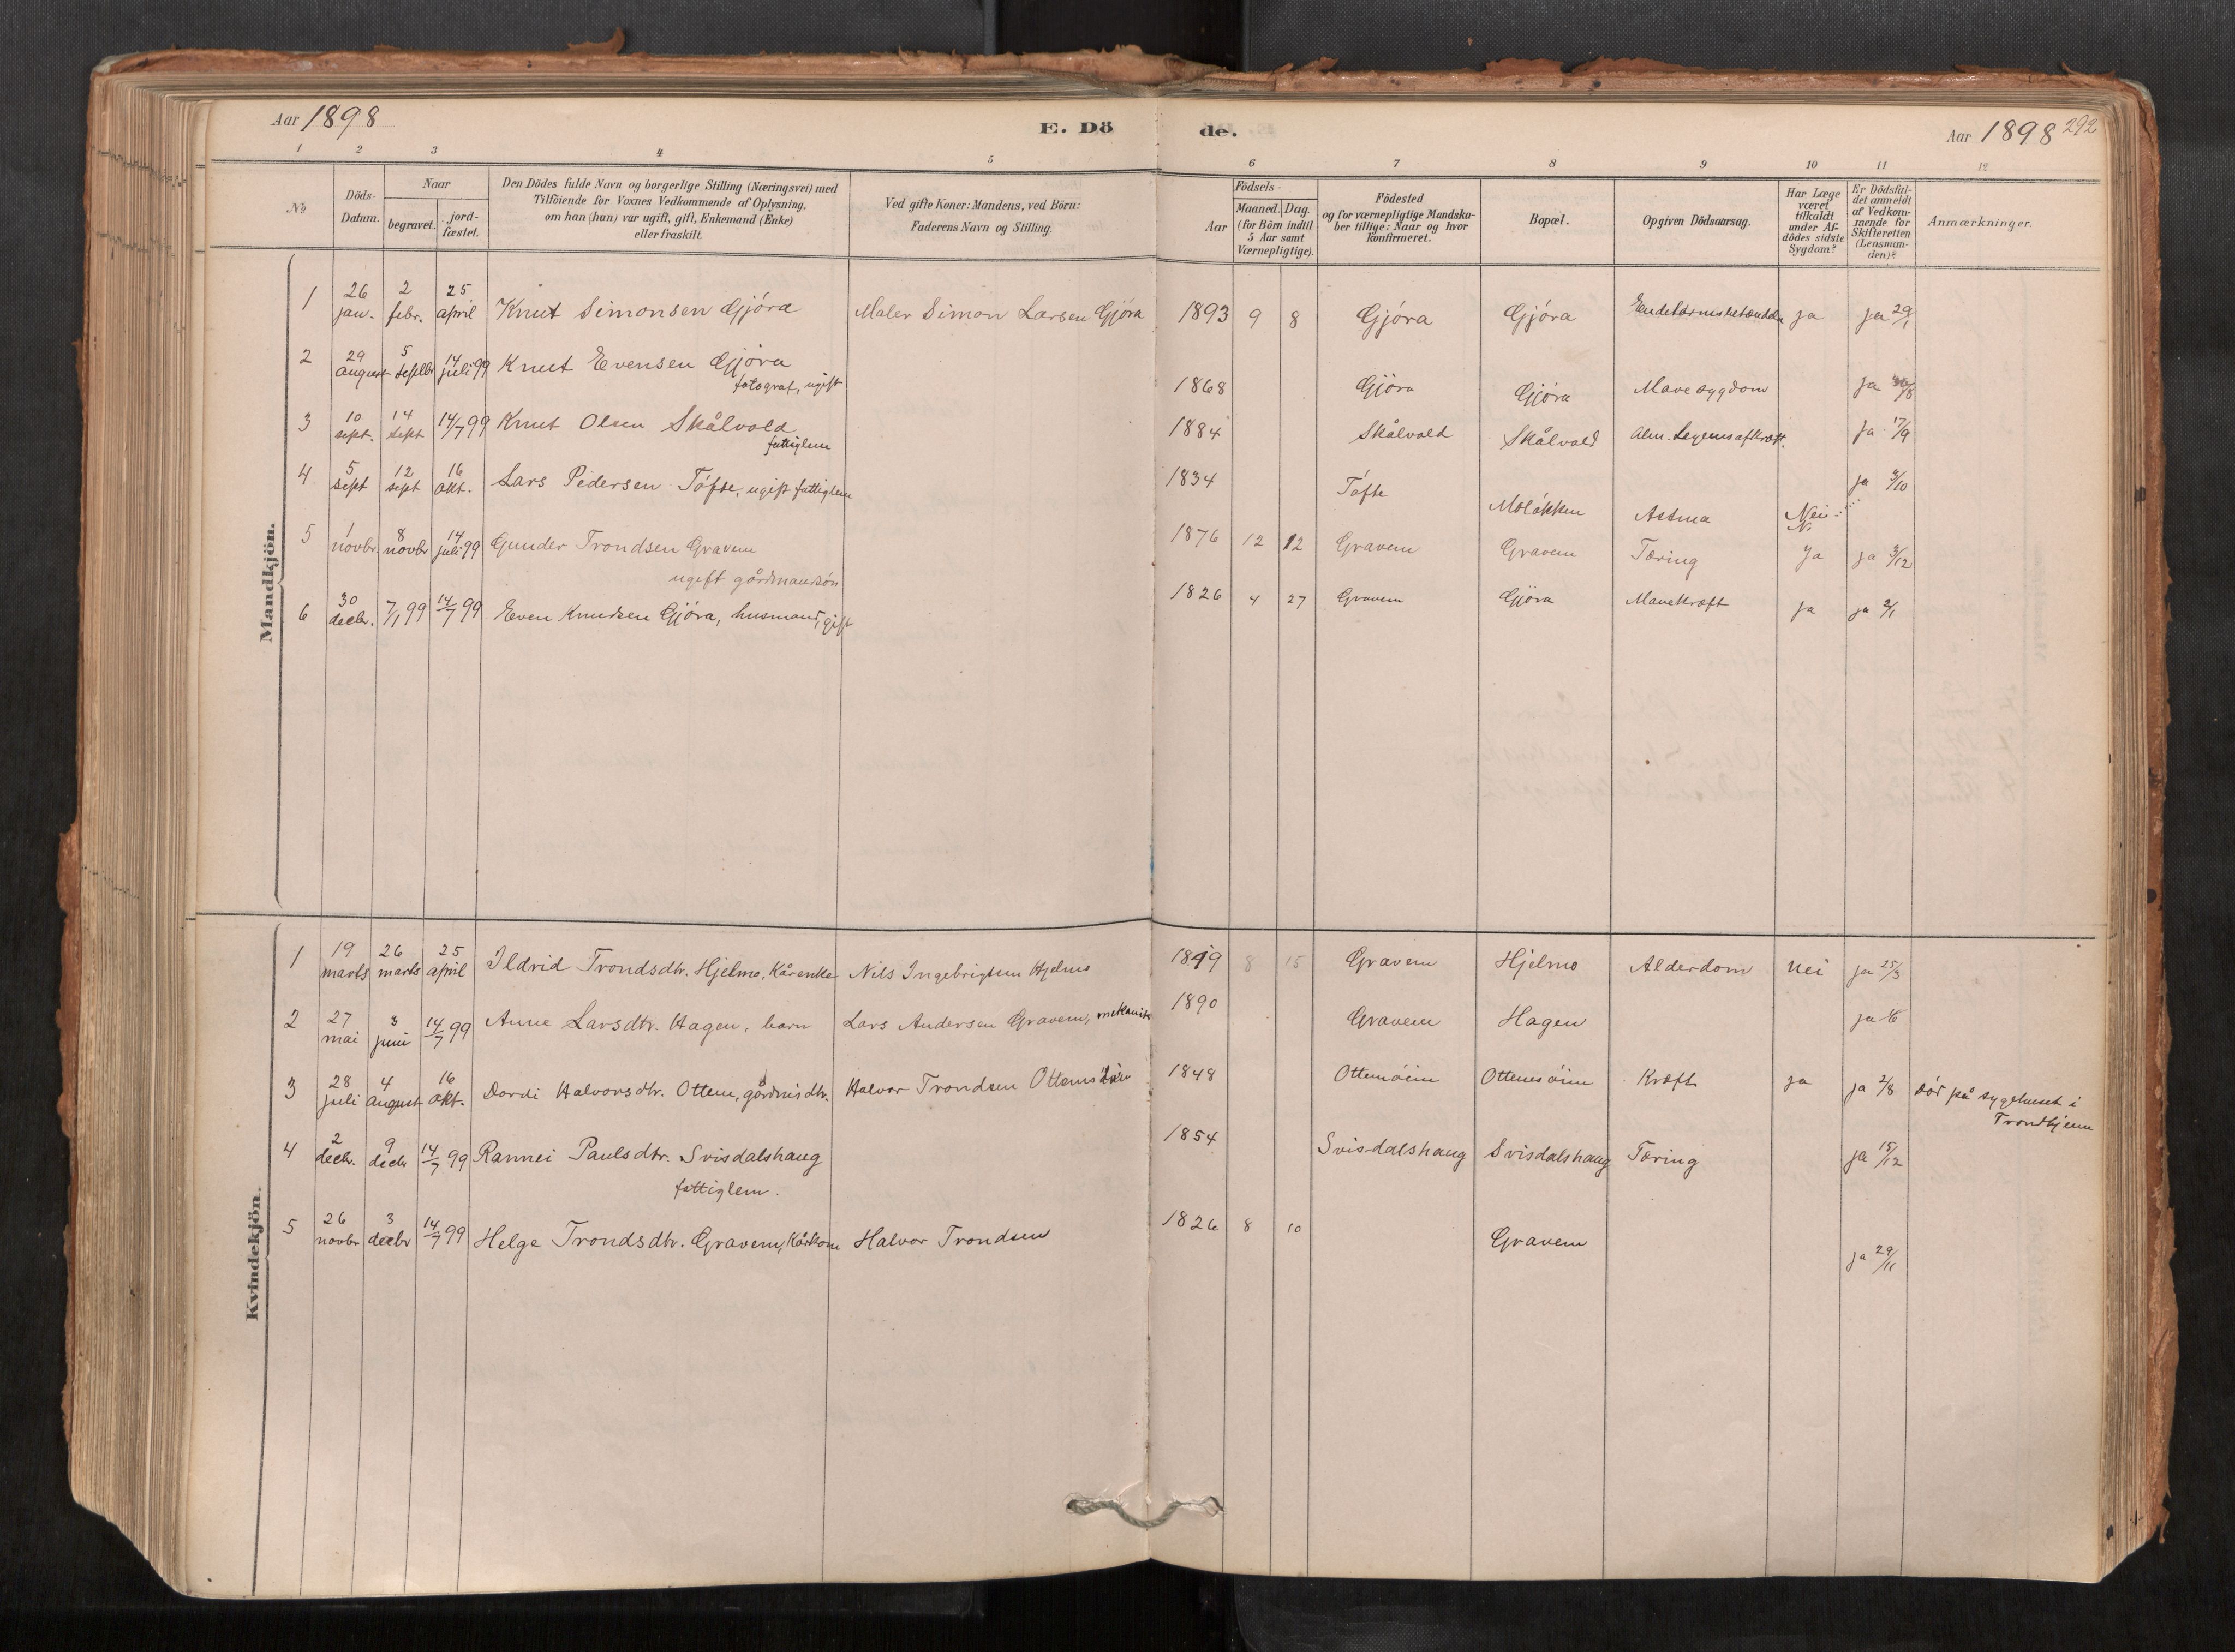 Aar 1898
E. Dö de.
Aar 1898 292
1 2 3 4 5 6 7 8 9 10 11 12
No
Döds-
Datum.
Naar
begravet.
jord-
fæstet.
Den Dödes fulde Navn og borgerlige Stilling (Næringsvei) med
Tilföiende for Voxnes Vedkommende af Oplysning,
om han (hun) var ugift, gift, Enkemand (Enke)
eller fraskilt.
Ved gifte Koner: Mandens, ved Börn:
Faderens Navn og Stilling.
Födsels-
Aar
Maaned. Dag.
(for Börn indtil
5 Aar samt
Værnepligtige).
Födested
og for værnepligtige Mandska-
ber tillige: Naar og hvor
konfirmeret.
Bopæl.
Opgiven Dödsaarsag.
Har Læge
været
tilkaldt
under Af-
dödes sidste
Sygdom?
Er Dödsfal-
det anmeldt
af Vedkom-
mende for
Skifteretten
(Lensman-
den)?
Anmærkninger.
Mandkjön.
1 26 jan. 2 febr. 25 april Knut Simonsen Gjóra Maler Simon Larsen Gjóra 1893 9 8 Gjóra Gjóra ja ja 29/1
2 29 august 5 septbr 14 juli 99 Knut Evensen Gjóra
fotograf, ugift 1868 Gjóra Gjóra Mavesygdom ja
3 10 sept. 14 sept 14/7 99 Knut Olsen Skålvold
fattiglem 1884 Skålvold Skålvold Alm. Legemsafkræft. ja 17/9
4 5 sept 12 sept 16 okt. Lars Pedersen Tófte, ugift fattiglem 1834 Tófte Molókken Astma Nei ja 3/10
5 1 novbr. 8 novbr 14 juli 99 Gunder Trondsen Gravem
ugift gårdmandsón 1876 12 12 Gravem Gravem Tæring Ja ja 3/12
6 30 decbr. 7/1 99 14/7 99 Even Knudsen Gjóra, husmand, gift 1826 4 27 Gravem Gjóra Mavekræft ja ja 2/1
Kvindekjön.
1 19 marts 26 marts 25 april Ildrid Trondsdtr. Hjelmo, Kårenke Nils Ingebrigtsen Hjelmo 1819 8 15 Gravem Hjelmo Alderdom nei ja 25/3
2 27 mai 3 juni 14/7 99 Anne Larsdtr. Hagen, barn Lars Andersen Gravem, mekanik 1890 Gravem Hagen ja
3 28 juli 4 august 16 okt. Dordi Halvorsdtr. Ottem, gårdmsdtr. Halvor Trondsen 1848 Ottemóien Ottemsóien Kræft ja ja 2/8 Dód på sygehuset i
Trondhjem
4 2 decbr. 9 decbr 14/7 99 Rannei Paulsdtr. Svisdalshaug
fattiglem. 1854 Svisdalshaug Svisdalshaug Tæring ja 15/12
5 26 novbr 3 decbr 14/7 99 Helge Trondsdtr. Gravem, Kårkone Halvor Trondsen 1826 8 10 Gravem ja 29/11